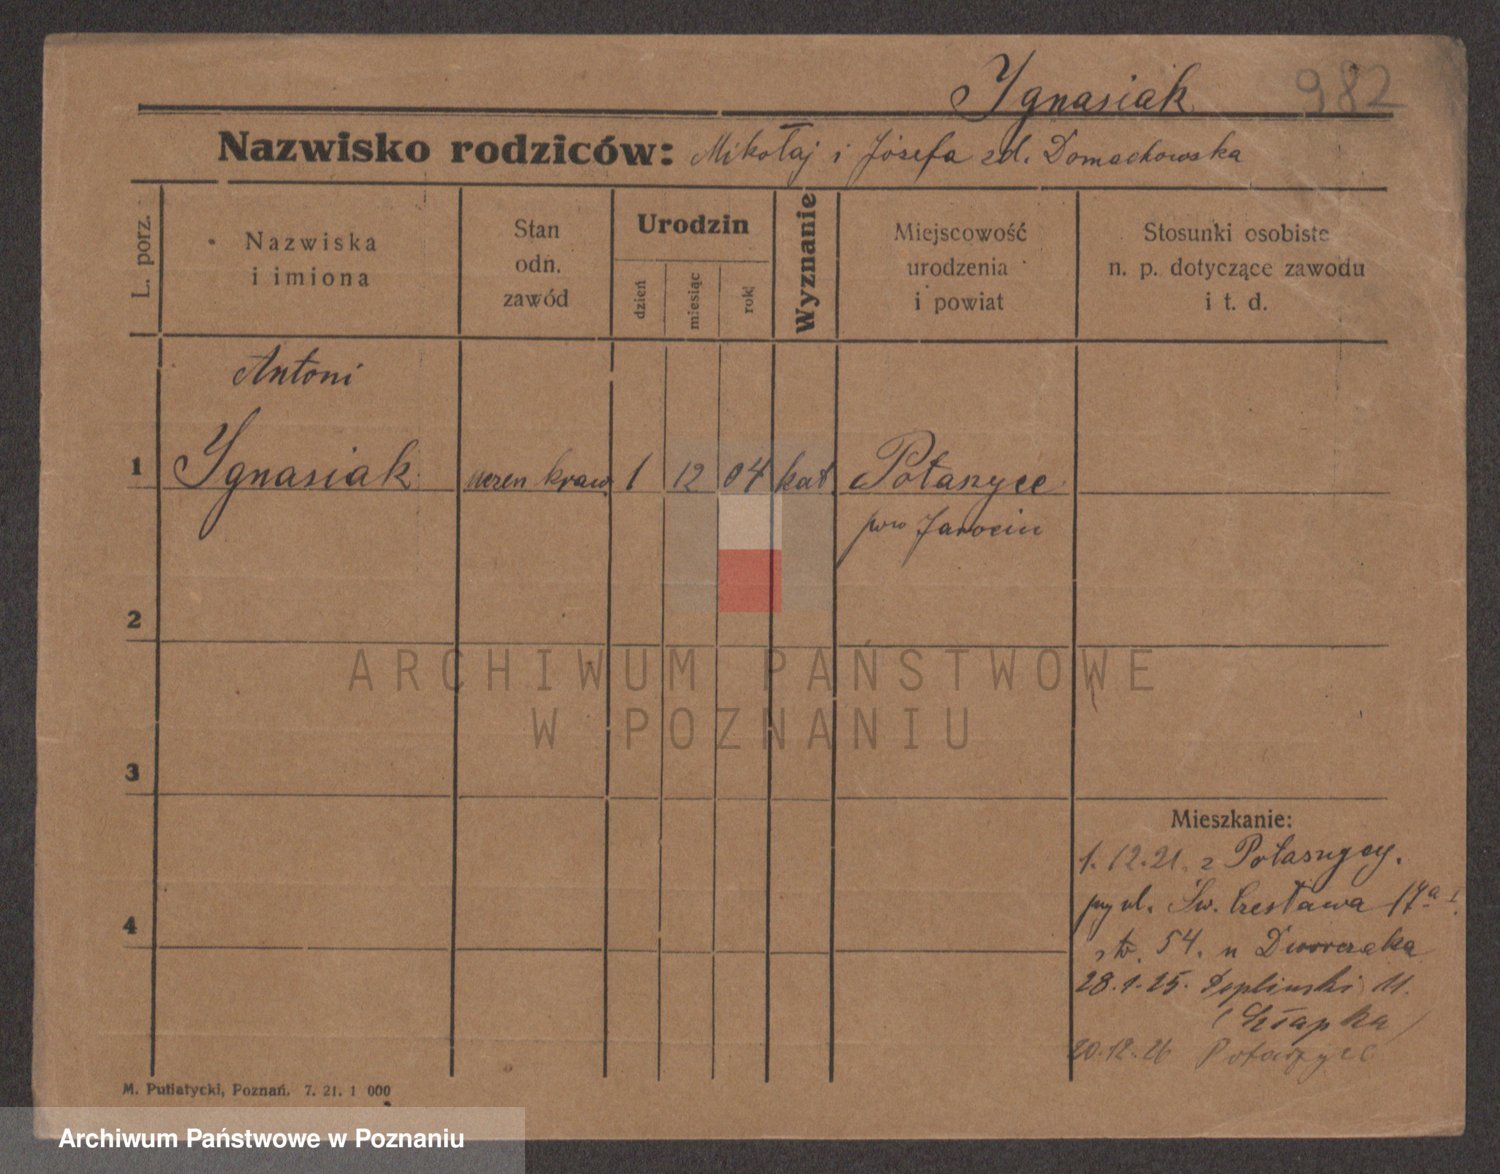 Ygnasiak 982
Nazwisko rodziców: Mikołaj i Józefa zd. Domachowska
L. porz.
Nazwiska
i imiona
Stan
odn.
zawód
Urodzin
dzień
miesiąc
rok
Wyznanie
Miejscowość
urodzenia
i powiat
Stosunki osobiste
n. p. dotyczące zawodu
i t. d.
Antoni
1 Ygnasiak uczen kraw. 1 12 04 kat. Potarzyce
pow Jarocin
2
3
4
ARCHIWUM PAŃSTWOWE
W POZNANIU
Mieszkanie:
1.12.21. z Potarzycy.
przy ul. Św. Czesława 17a I.
54. u Dworczaka
28.1.25. 11.
(Człapka)
20.12.26 Potarzyce
M. Putiatycki, Poznań. 7. 21. 1 000
Archiwum Państwowe w Poznaniu